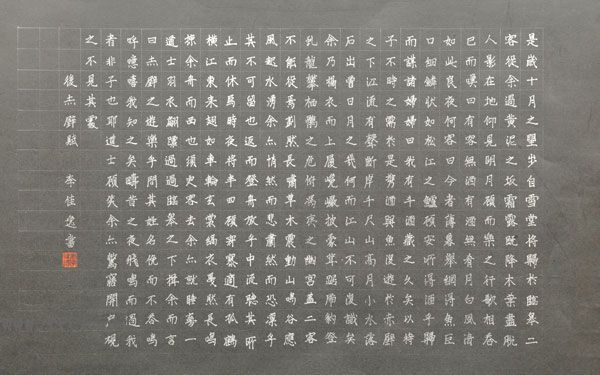 是歲十月之望步自雪堂將歸於臨皋二
客從余過黃泥之坂霜露既降木葉盡脫
人影在地仰見明月顧而樂之行歌相答
已而嘆曰有客無酒有酒無肴月白風清
如此良夜何客曰今者薄暮舉網得魚巨
口細鱗狀如松江之鱸顧安所得酒乎歸
而謀諸婦婦曰我有斗酒藏之久矣以待
子不時之需於是攜酒與魚復遊於赤壁
之下江流有聲斷岸千尺山高月小水落
石出曾日月之幾何而江山不可復識矣
余乃攝衣而上履巉巖披蒙茸踞虎豹登
虬龍攀栖鶻之危俯馮夷之幽宮蓋二客
不能從焉劃然長嘯草木震動山鳴谷應
風起水湧余亦悄然而悲肅然而恐凜乎
其不可留也返而登舟放乎中流聽其所
止而休焉時夜將半四顧寂寥適有孤鶴
橫江東來翅如車輪玄裳縞衣戛然長鳴
掠余舟而西也須臾客去余亦就睡夢一
道士羽衣翩躚過過臨皋之下揖余而言
曰赤壁之遊樂乎問其姓名俛而不答嗚
呼噫嘻我知之矣疇昔之夜飛鳴而過我
者非子也耶道士顧笑余亦驚寤開戶視
之不見其處
後赤壁賦 李佳逸書